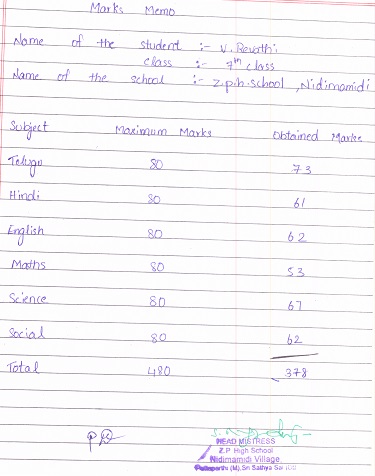 Marks Memo
Name of the student :- V. Revathi
class :- 7th class
Name of the school :- Z.p.h.school, Nidimamidi
Subject Maximum Marks Obtained Marks
Telugu 80 73
Hindi 80 61
English 80 62
Maths 80 53
Science 80 67
Social 80 62
Total 480 378
HEAD MISTRESS
Z.P High School
Nidimamidi Village
Puttaparthi (M), Sri Sathya Sai